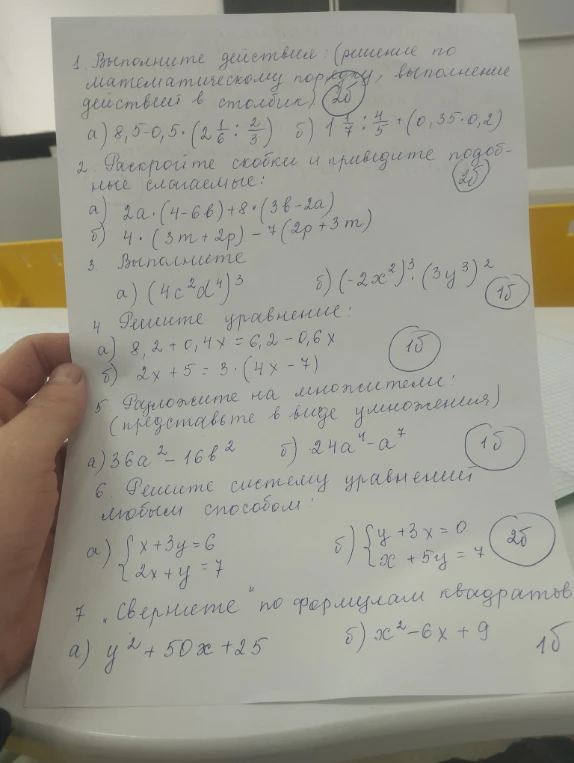 1. Выполните действия: (решение по
математическому порядку, выполнение
действий в столбик) 2б
а) 8,5-0,5·(2 1/6 : 2/3) б) 1 1/7 : 4/5 + (0,35·0,2)
2. Раскройте скобки и приведите подоб-
ные слагаемые: 2б
а) 2a·(4-6b)+8·(3b-2a)
б) 4·(3m+2p)-7(2p+3m)
3 Выполните
а) (4c²d⁴)³ б) (-2x²)³·(3y³)² 1б
4 Решите уравнение:
а) 8,2+0,4x=6,2-0,6x 1б
б) 2x+5=3·(4x-7)
5 Разложите на множители:
(представьте в виде умножения)
а) 36a²-16b² б) 24a⁴-a⁷ 1б
6. Решите систему уравнений
любым способом:
а) { x+3y=6 б) { y+3x=0 2б
{ 2x+y=7 { x+5y=7
7 „Сверните" по формулам квадратов
а) y²+50x+25 б) x²-6x+9 1б